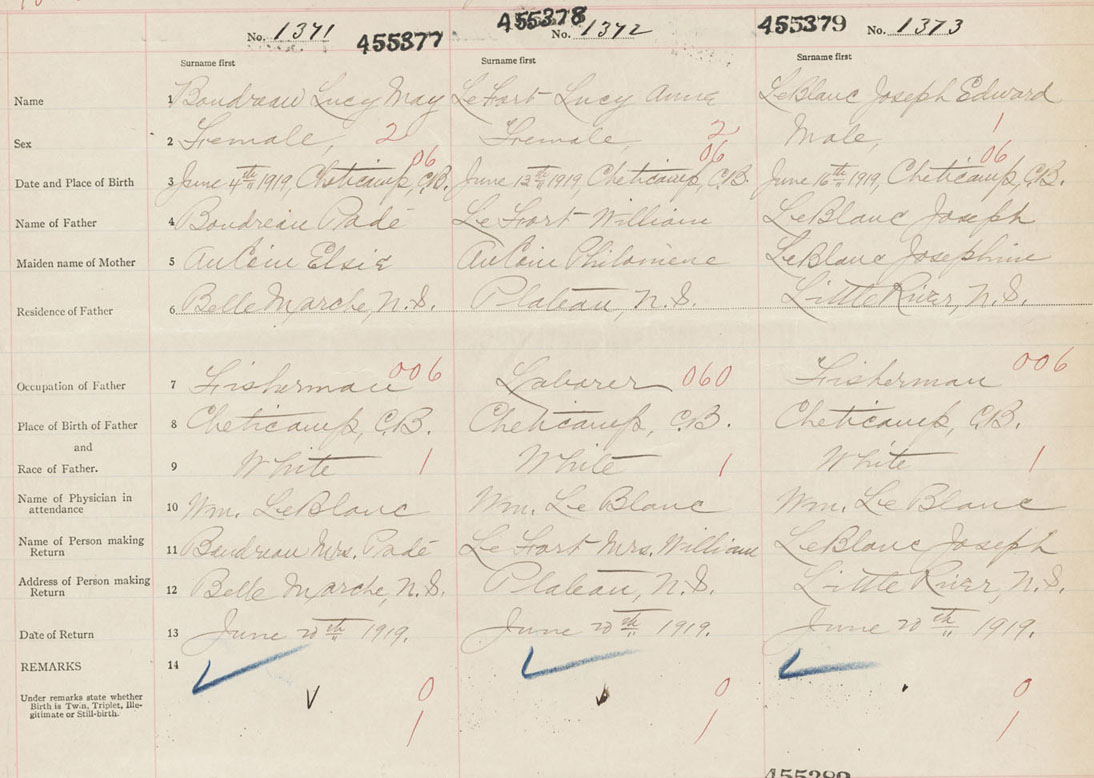 No. 1371 455377 455378 No. 1372 455379 No. 1373
Surname first Surname first Surname first
Name 1 Boudreau Lucy May LeFort Lucy Anne LeBlanc Joseph Edward
Sex 2 Female, 2 Female, 2 Male, 1
06 06 06
Date and Place of Birth 3 June 4th 1919, Cheticamp, C.B. June 12th 1919, Cheticamp, C.B. June 16th 1919, Cheticamp, C.B.
Name of Father 4 Boudreau Padé LeFort William LeBlanc Joseph
Maiden name of Mother 5 AuCoin Elsie AuCoin Philomene LeBlanc Josephine
Residence of Father 6 Belle Marche, N.S. Plateau, N.S. Little River, N.S.
Occupation of Father 7 Fisherman 006 Laborer 060 Fisherman 006
Place of Birth of Father 8 Cheticamp, C.B. Cheticamp, C.B. Cheticamp, C.B.
and
Race of Father. 9 White 1 White 1 White 1
Name of Physician in
attendance 10 Wm. LeBlanc Wm. LeBlanc Wm. LeBlanc
Name of Person making
Return 11 Boudreau Mrs. Padé LeFort Mrs. William LeBlanc Joseph
Address of Person making
Return 12 Belle Marche, N.S. Plateau, N.S. Little River, N.S.
Date of Return 13 June 20th 1919. June 20th 1919. June 20th 1919.
REMARKS 14
Under remarks state whether
Birth is Twin, Triplet, Ille-
gitimate or Still-birth.
0 0 0
1 1 1